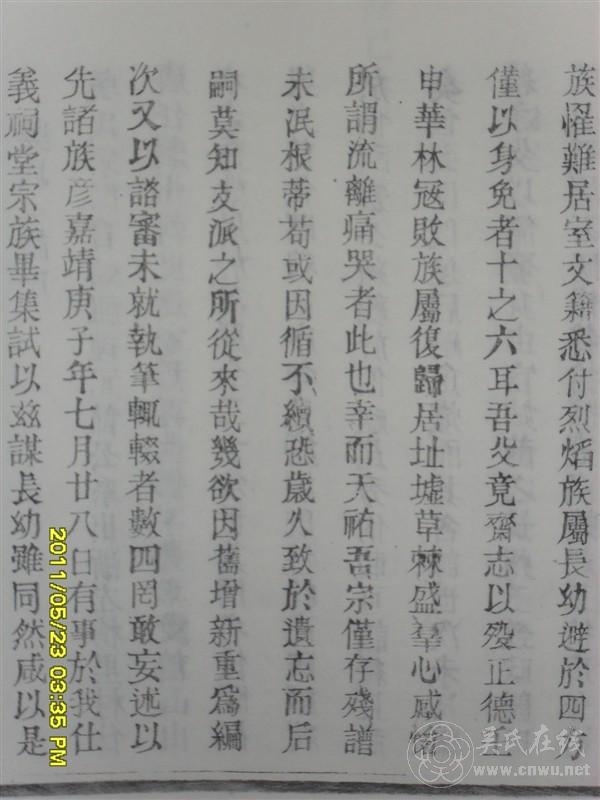 族惟難居室文籍悉付烈焰族屬長幼避於四方
僅以身免者十之六耳吾父竟齎志以歿正德壬
申華林冦敗族屬復歸居址墟草棘盛羣心感
所謂流離痛哭者此也幸而天祐吾宗僅存殘譜
未泯根蒂苟或因循不續恐歲久致於遺忘而后
嗣莫知支派之所從來哉幾欲因舊增新重爲編
次又以諮審未就執筆輒輟者數四罔敢妄述以
先諸族彦嘉靖庚子年七月廿八日有事於我仕
義祠堂宗族畢集試以玆謀長幼雖同然咸以是
2011/05/23 03:35 PM
吴氏在线
www.cnwu.net